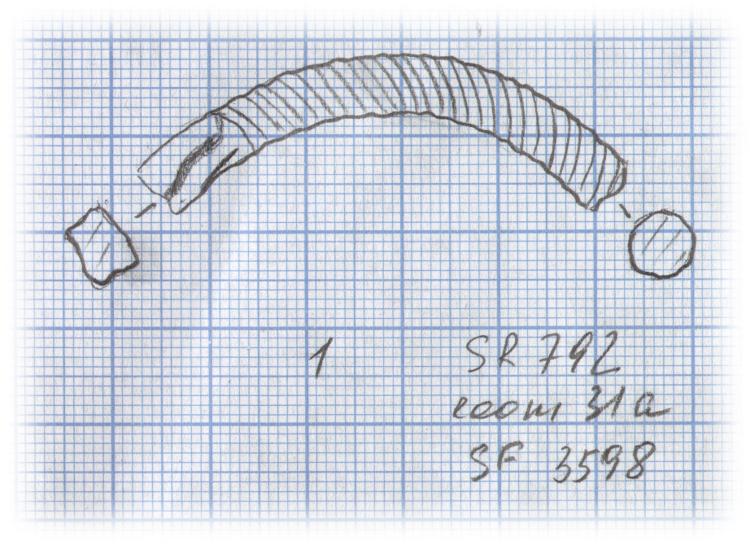 1
SR 792
room 31a
SF 3598